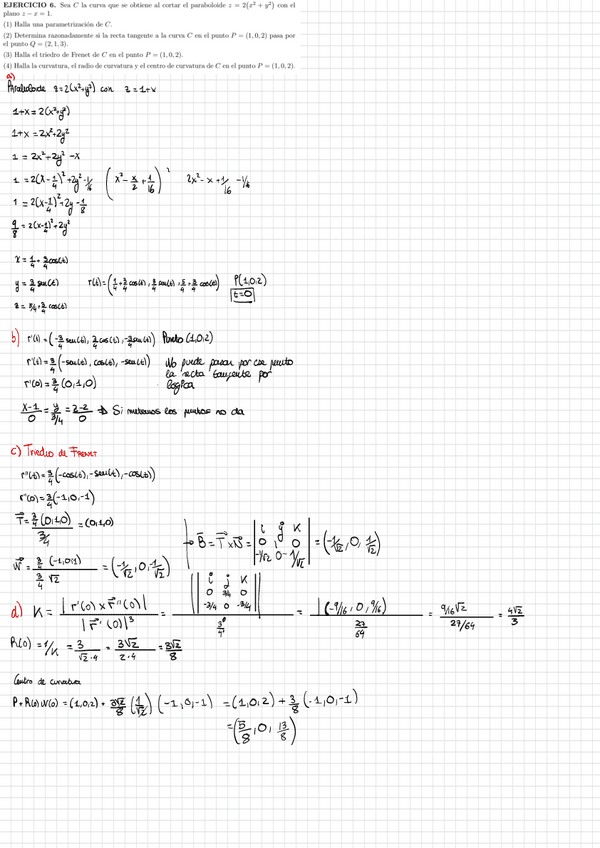 EJERCICIO 6. Sea C la curva que se obtiene al cortar el paraboloide z = 2(x² + y²) con el
plano z − x = 1.
(1) Halla una parametrización de C.
(2) Determina razonadamente si la recta tangente a la curva C en el punto P = (1, 0, 2) pasa por
el punto Q = (2, 1, 3).
(3) Halla el triedro de Frenet de C en el punto P = (1, 0, 2).
(4) Halla la curvatura, el radio de curvatura y el centro de curvatura de C en el punto P = (1, 0, 2).
a)
Paraboloide z=2(x²+y²) con z=1+x
1+x = 2(x²+y²)
1+x = 2x²+2y²
1 = 2x²+2y² -x
1 = 2(x-1/4)²+2y²-1/16 (x²-x/2+1/16)² 2x²-x+1/16 -1/16
1 = 2(x-1/4)²+2y-1/8
9/8 = 2(x-1/4)²+2y²
x = 1/4 + 3/4 cos(t)
y = 3/4 sen(t) r(t) = (1/4+3/4 cos(t), 3/4 sen(t), 5/4+3/4 cos(t)) P(1,0,2)
t=0
z = 5/4+3/4 cos(t)
b) r'(t) = (-3/4 sen(t), 3/4 cos(t), -3/4 sen(t)) Punto (1,0,2)
r'(t) = 3/4 (-sen(t), cos(t), -sen(t)) No puede pasar por ese punto
la recta tangente por
r'(0) = 3/4 (0,1,0) logica
x-1/0 = y/3/4 = z-2/0 → Si metemos los puntos no da
c) Triedro de Frenet
r''(t) = 3/4 (-cos(t), -sen(t), -cos(t))
r''(0) = 3/4 (-1,0,-1)
T = 3/4 (0,1,0) / 3/4 = (0,1,0)
→ B = T x N = | i j k | 0 1 0 | -1/√2 0 -1/√2 | = (-1/√2, 0, 1/√2)
N = 3/4 (-1,0,1) / 3/4 √2 = (-1/√2, 0, -1/√2)
d) K = | r'(0) x r''(0) | / | r'(0) |³ = || i j k | 0 3/4 0 | -3/4 0 -3/4 || / 3³/4³ = | (-9/16, 0, 9/16) | / 27/64 = 9/16 √2 / 27/64 = 4√2/3
R(0) = 1/K = 3/√2·4 = 3√2/2·4 = 3√2/8
Centro de curvatura
P+R(0) N(0) = (1,0,2) + 3√2/8 (1/√2) (-1,0,-1) = (1,0,2) + 3/8 (-1,0,-1)
= (5/8, 0, 13/8)